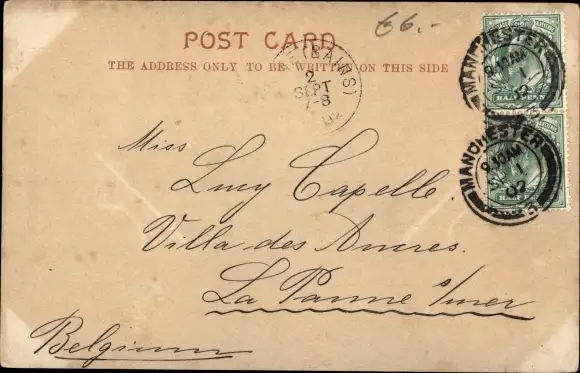 66.-
POST CARD
THE ADDRESS ONLY TO BE WRITTEN ON THIS SIDE
(BAINS)
2
SEPT
7-8
02
MANCHESTER
9.10AM
1
02
HALFPENNY
MANCHESTER
9.10AM
1
02
HALFPENNY
Miss
Lucy Capelle.
Villa des Ancres.
La Panne s/mer
Belgium